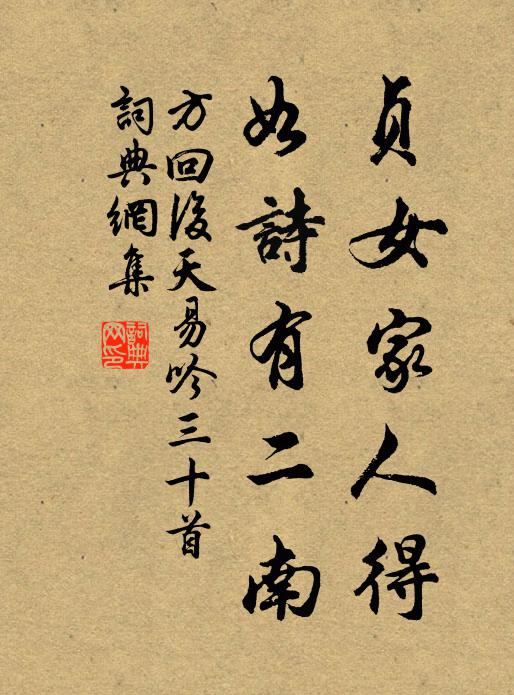 貞女家人得
如詩有二南
方回後天易吟三十首
詞典網集
詞典網印